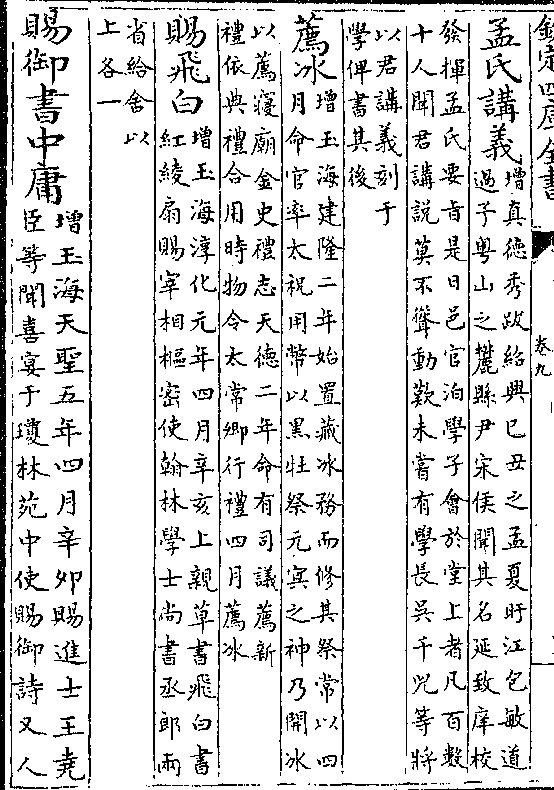 欽定四庫全書
卷九
孟氏講義增真德秀跋紹興巳丑之孟夏盱江包敏道
過子粤山之麓縣尹宋侯聞其名延致庠校
發揮孟氏要旨是日邑官洎學子會於堂上者凡百數
十人聞君講說莫不聳動歎未嘗有學長吳千兕等將
以君講義刻于
學俾書其後
薦冰增玉海建隆二年始置藏冰務而修其祭常以四
月命官率太祝用幣以黑牡祭元冥之神乃開冰
以薦寢廟金史禮志天德二年命有司議薦新
禮依典禮合用時物令太常卿行禮四月薦冰
賜飛白增玉海淳化元年四月辛亥上親草書飛白書
紅綾扇賜宰相樞密使翰林學士尚書丞郎兩
省給舍以
上各一
賜御書中庸增玉海天聖五年四月辛夘賜進士王堯
臣等聞喜宴于瓊林苑中使賜御詩又人